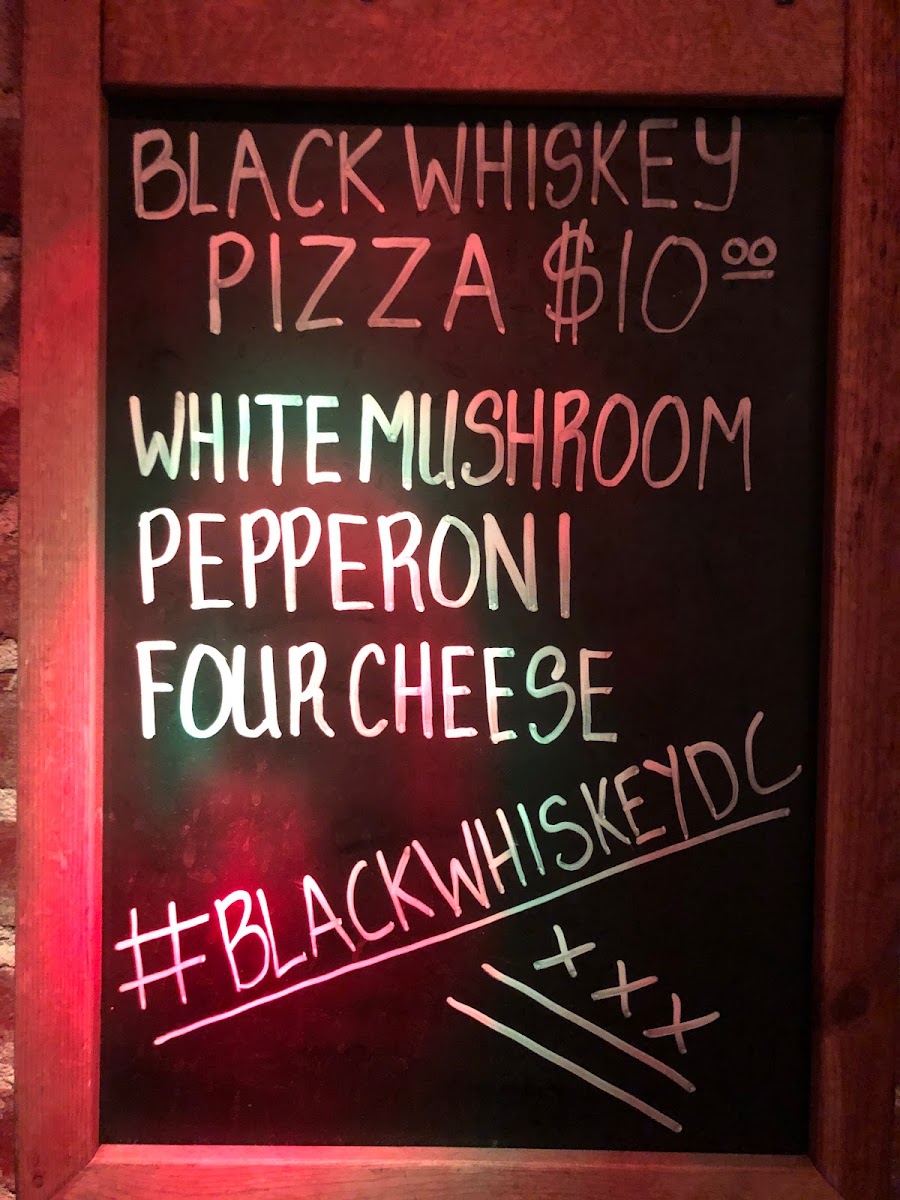 BLACK WHISKEY
PIZZA $10.00
WHITE MUSHROOM
PEPPERONI
FOUR CHEESE
#BLACKWHISKEYDC